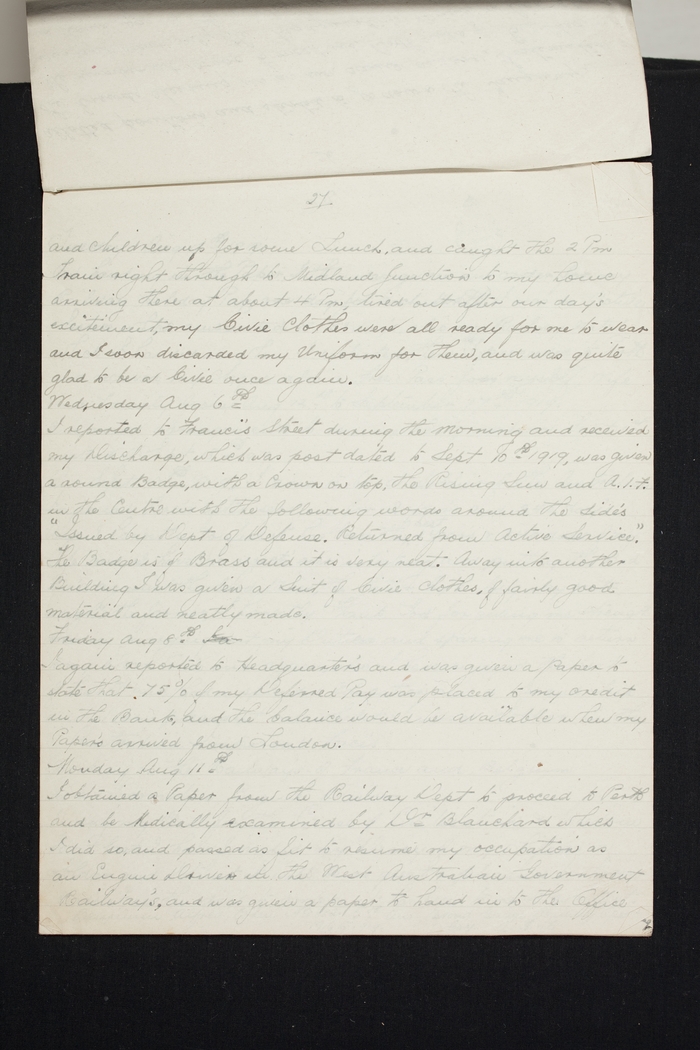 27.
and children up for some Lunch, and caught the 2 Pm
Train right through to Midland Junction to my home
arriving there at about 4 Pm, tired out after our day's
excitement, my Civie Clothes were all ready for me to wear
and I soon discarded my Uniform for them, and was quite
glad to be a Civie once again.
Wednesday Aug 6th
I reported to Francis Street during the morning and received
my Discharge, which was post dated to Sept 10th 1919, was given
a round Badge, with a Crown on top, the Rising Sun and A.I.F.
in the Centre with the following words around the sides
"Issued by Dept of Defense. Returned from Active Service."
The Badge is of Brass and it is very neat. Away into another
Building I was given a Suit of Civie Clothes, of fairly good
material and neatly made.
Friday Aug 8th
I again reported to Headquarters and was given a Paper to
state that 75% of my Deferred Pay was placed to my credit
in the Bank, and the balance would be available when my
Papers arrived from London.
Monday Aug 11th
I obtained a Paper from the Railway Dept to proceed to Perth
and be Medically examined by Dr Blanchard which
I did so, and passed as fit to resume my occupation as
an Engine Driver in the West Australian Government
Railway's, and was given a paper to hand in to the Office